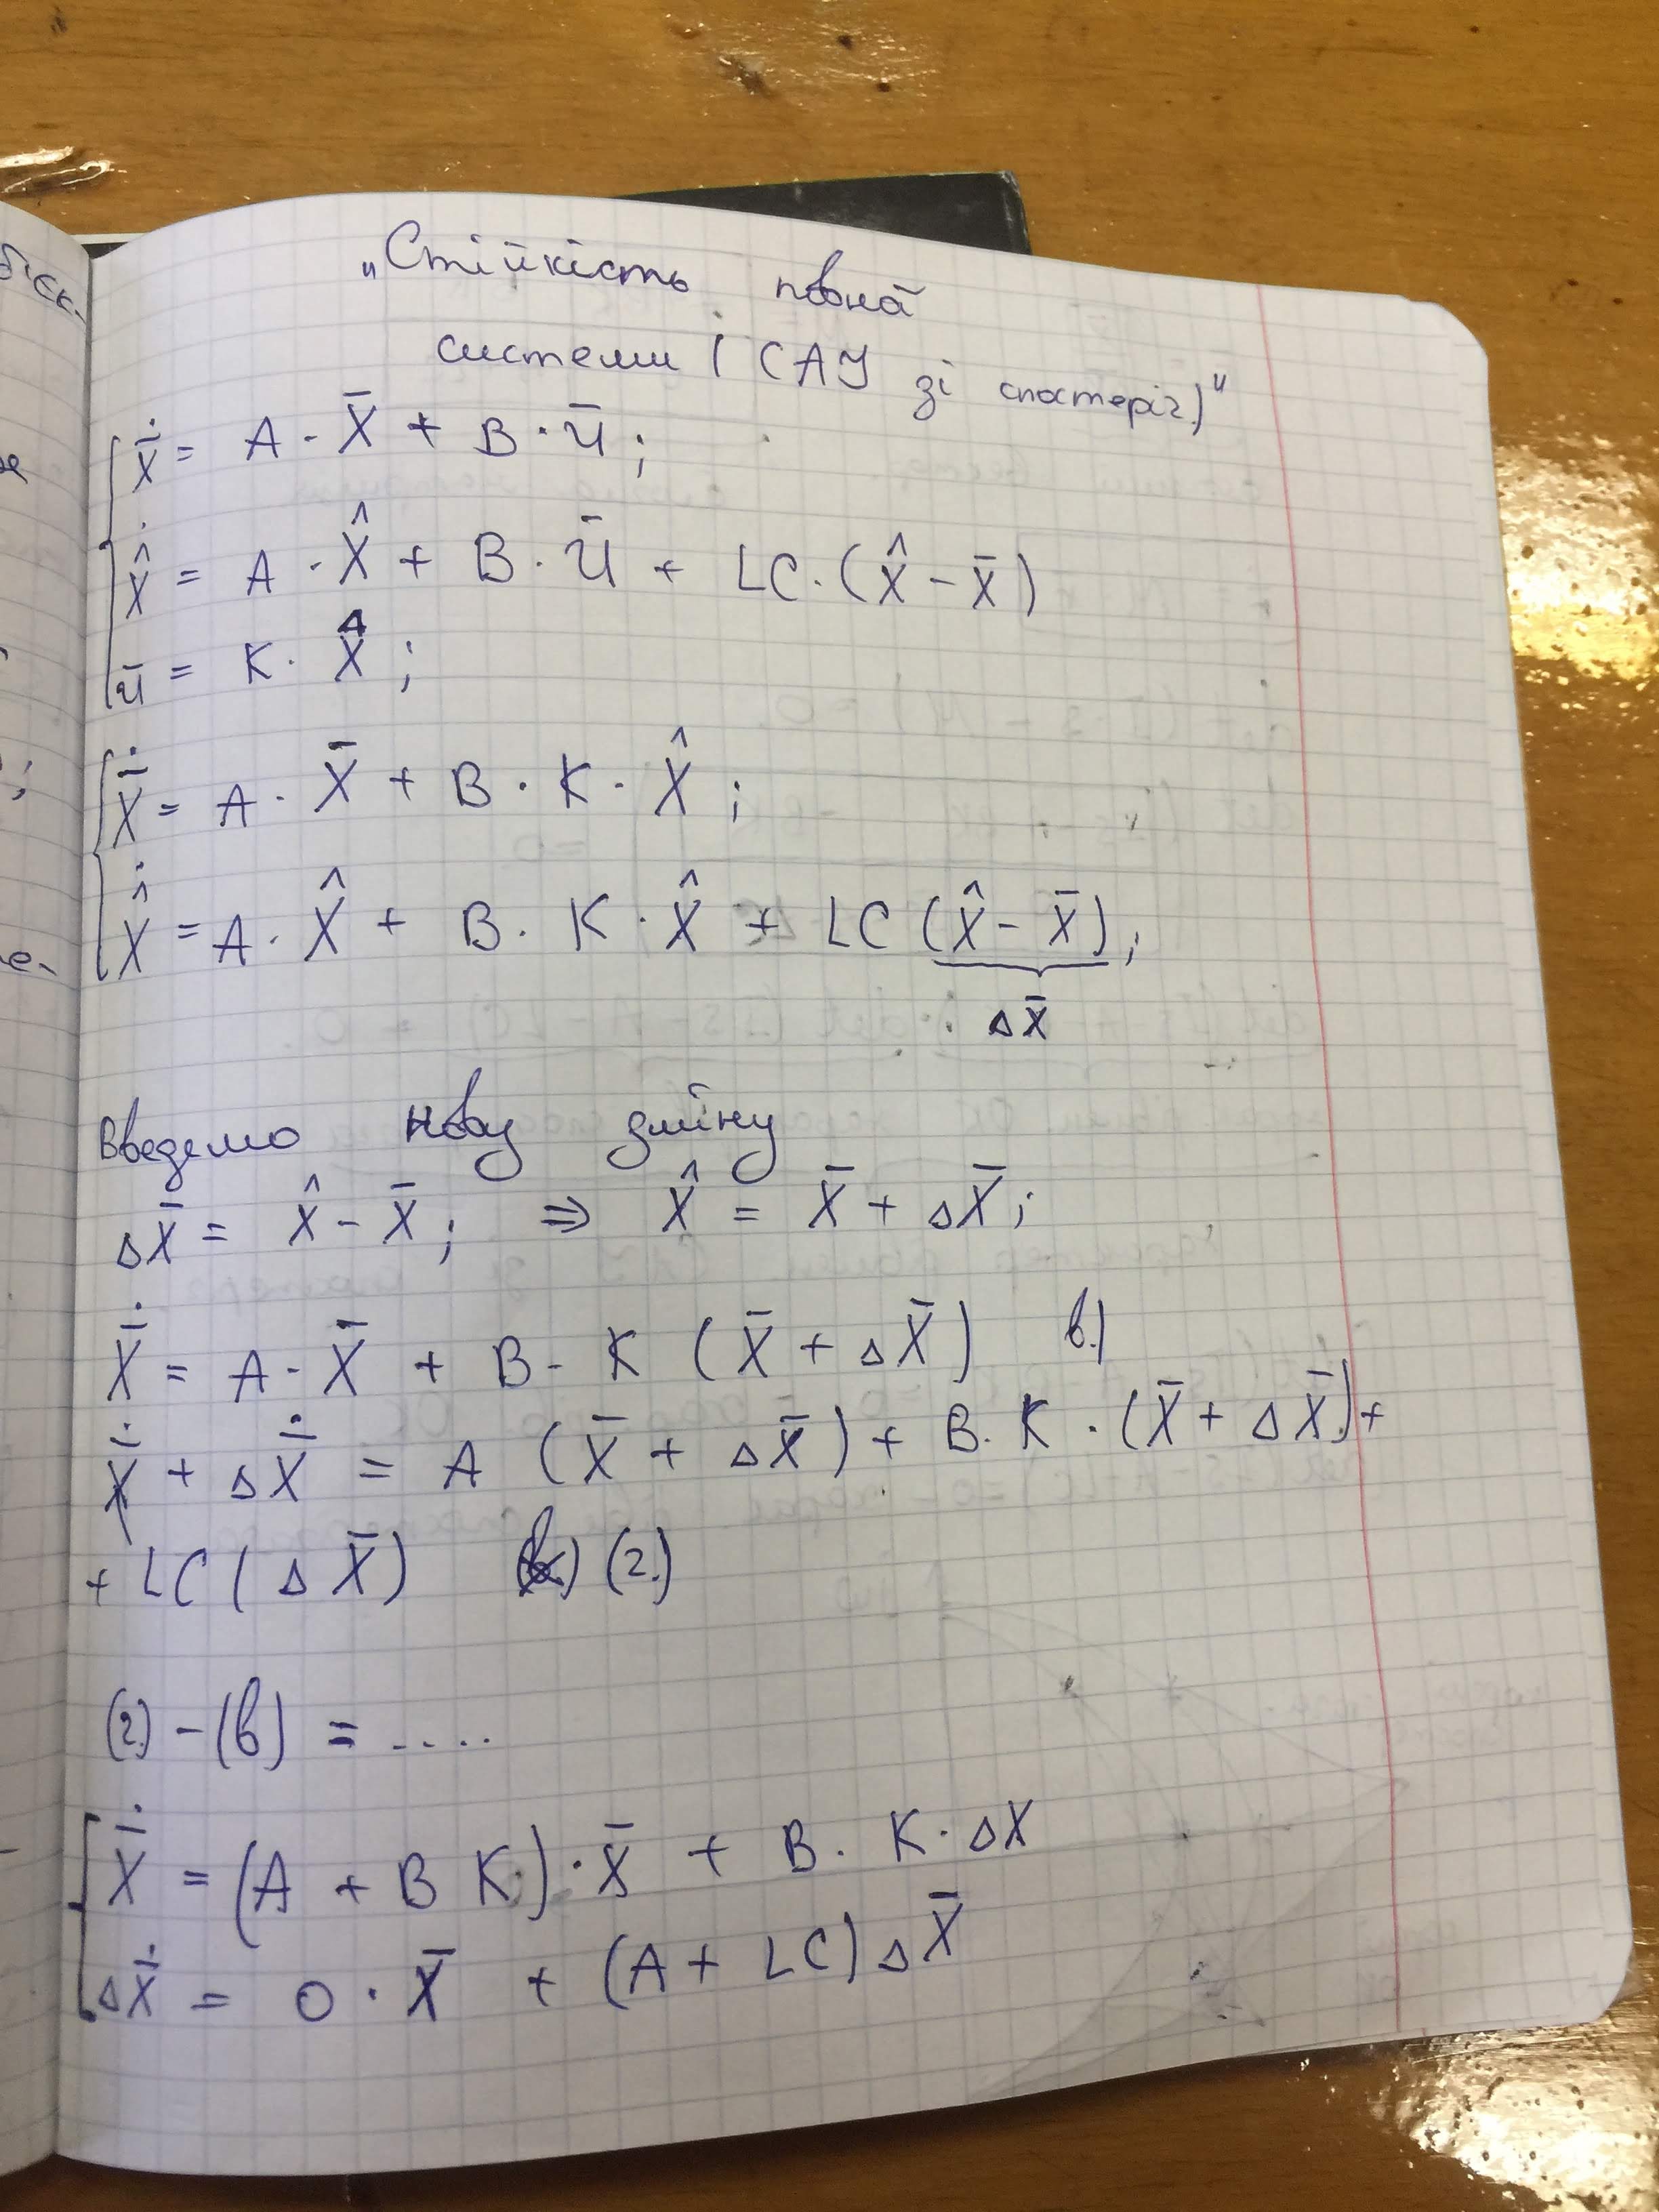 „Стійкість повної
системи (САУ зі спостеріг.)"
Ẋ̄ = A · X̄ + B · Ū ;
X̂̇ = A · X̂ + B · Ū + LC · (X̂ − X̄)
Ū = K · X̂ ;
Ẋ̄ = A · X̄ + B · K · X̂ ;
X̂̇ = A · X̂ + B · K · X̂ + LC (X̂ − X̄) ;
ΔX̄
Введемо нову змінну
ΔX̄ = X̂ − X̄ ; ⇒ X̂ = X̄ + ΔX̄ ;
Ẋ̄ = A · X̄ + B · K (X̄ + ΔX̄) в.)
Ẋ̄ + ΔẊ̄ = A (X̄ + ΔX̄) + B · K · (X̄ + ΔX̄) +
+ LC (ΔX̄) (г.)
(г.) − (в) = ....
Ẋ̄ = (A + B K) · X̄ + B · K · ΔX
ΔẊ̄ = 0 · X̄ + (A + LC) ΔX̄